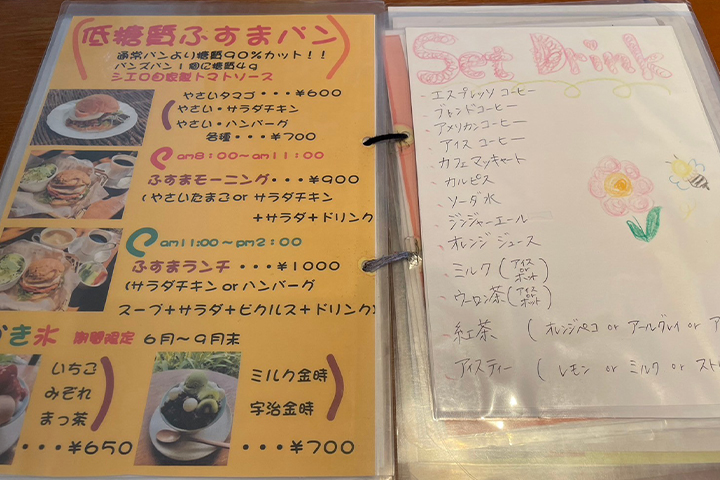 低糖質ふすまパン
通常パンより糖質90%カット!!
バンズパン1個に糖質4g
シエロ自家製トマトソース
やさいタマゴ ・・・¥600
やさい・サラダチキン
やさい・ハンバーグ
各種・・・¥700
am8:00〜am11:00
ふすまモーニング・・・¥900
(やさいたまごorサラダチキン
+サラダ+ドリンク
am11:00〜pm2:00
ふすまランチ ・・・¥1000
(サラダチキンorハンバーグ
スープ+サラダ+ピクルス+ドリンク)
き氷 期間限定 6月〜9月末
いちご
みぞれ
まっ茶
・・・¥650
ミルク金時
宇治金時
・・・¥700
Set Drink
・エスプレッソ コーヒー
・ブレンドコーヒー
・アメリカンコーヒー
・アイス コーヒー
・カフェマッキャート
・カルピス
・ソーダ水
・ジンジャーエール
・オレンジ ジュース
・ミルク (アイス or ホット)
・ウーロン茶 (アイス or ホット)
・紅茶 (オレンジペコ or アールグレイ or ア
・アイスティー ( レモン or ミルク or スト